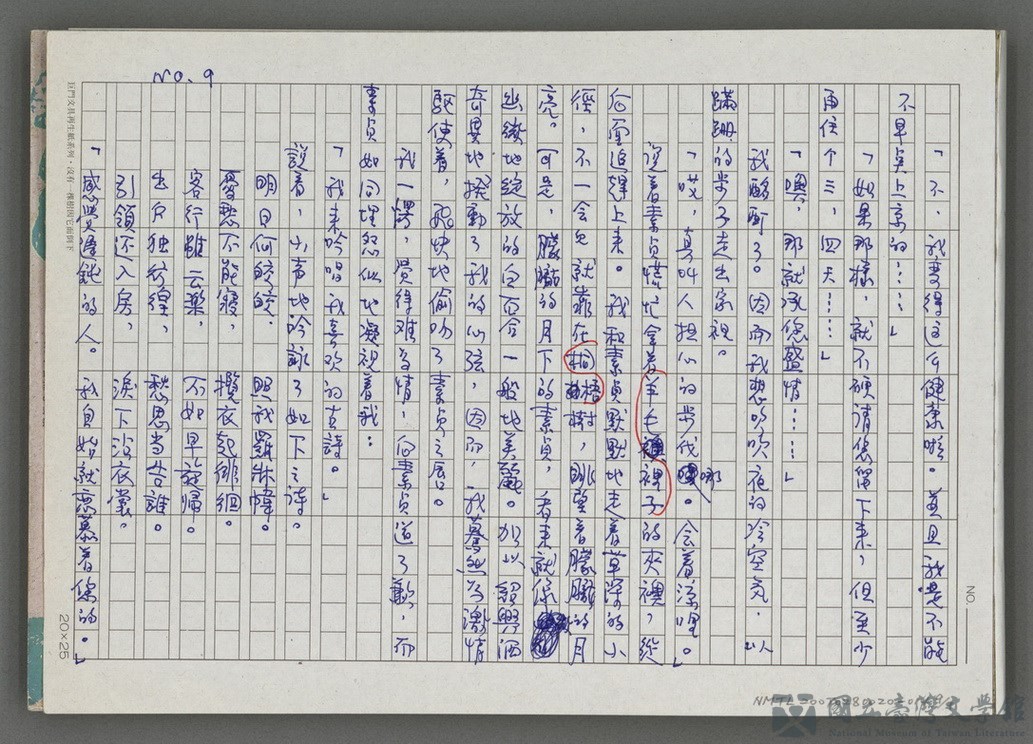 NO. 9
「不，我要得這么健康啦。並且我是不能
不早點上京的……」
「如果那樣，就不硬請您留下來，但至少
再住个三，四天……」
「噢，那就承您盛情……」
我酩酊了。因而我想吹吹夜的冷空气。以
蹒跚的步子走出家裡。
「哎，真叫人担心的步伐哪。会着涼哩。」
說着素貞慌忙拿着羊毛裡子的夾襖，從
后面追趕上來。我和素貞默默地走着草深的小
徑，不一会兒就靠在梧桐樹，眺望着朦朧的月
亮。可是，朦朧的月下的素貞，看來就像
幽幾地綻放的白百合一般地美麗。加以詩興洒
奇異地撥動了我的心弦，因而，我驀然为激情
驅使着，飛快地偷吻了素貞之唇。
我一愕，覺得难为情，向素貞道了歉，而
素貞如同埋怨似地凝視着我：
「我來吟唱我喜欢的古詩。」
說着，小声地吟詠了如下之詩。
明月何皎皎，　照我羅牀幃。
憂愁不能寢，　攬衣起徘徊。
客行雖云樂，　不如早旋歸。
出户独彷徨，　愁思当告誰。
引領还入房，　淚下沾衣裳。
「感覺遲鈍的人。我自始就恋慕着您的。」
巨門文具再生紙系列・沒有一棵樹因它而倒下
NO.
20×25
國立臺灣文學館
National Museum of Taiwan Literature